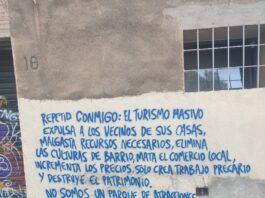 16
REPETID CONMIGO: EL TURISMO MASIVO
EXPULSA A LOS VECINOS DE SUS CASAS,
MALGASTA RECURSOS NECESARIOS, ELIMINA
LAS CULTURAS DE BARRIO, MATA EL COMERCIO LOCAL,
INCREMENTA LOS PRECIOS. SÓLO CREA TRABAJO PRECARIO
Y DESTRUYE EL PATRIMONIO.
NO SOMOS UN PARQUE DE ATRACCIONES